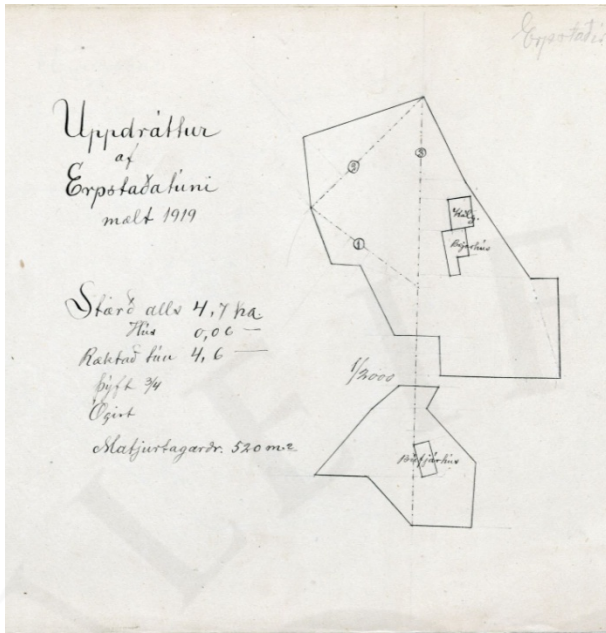 Erpstaðir
Uppdráttur
af
Erpstaðatúni
mælt 1919
Stærð alls 4,7 ha.
Hús 0,06 —
Ræktað tún 4,6 —
Þýft 3/4
Ógirt
Matjurtagarðr. 520 m2.
②
③
①
Bæjarhús
1/2000